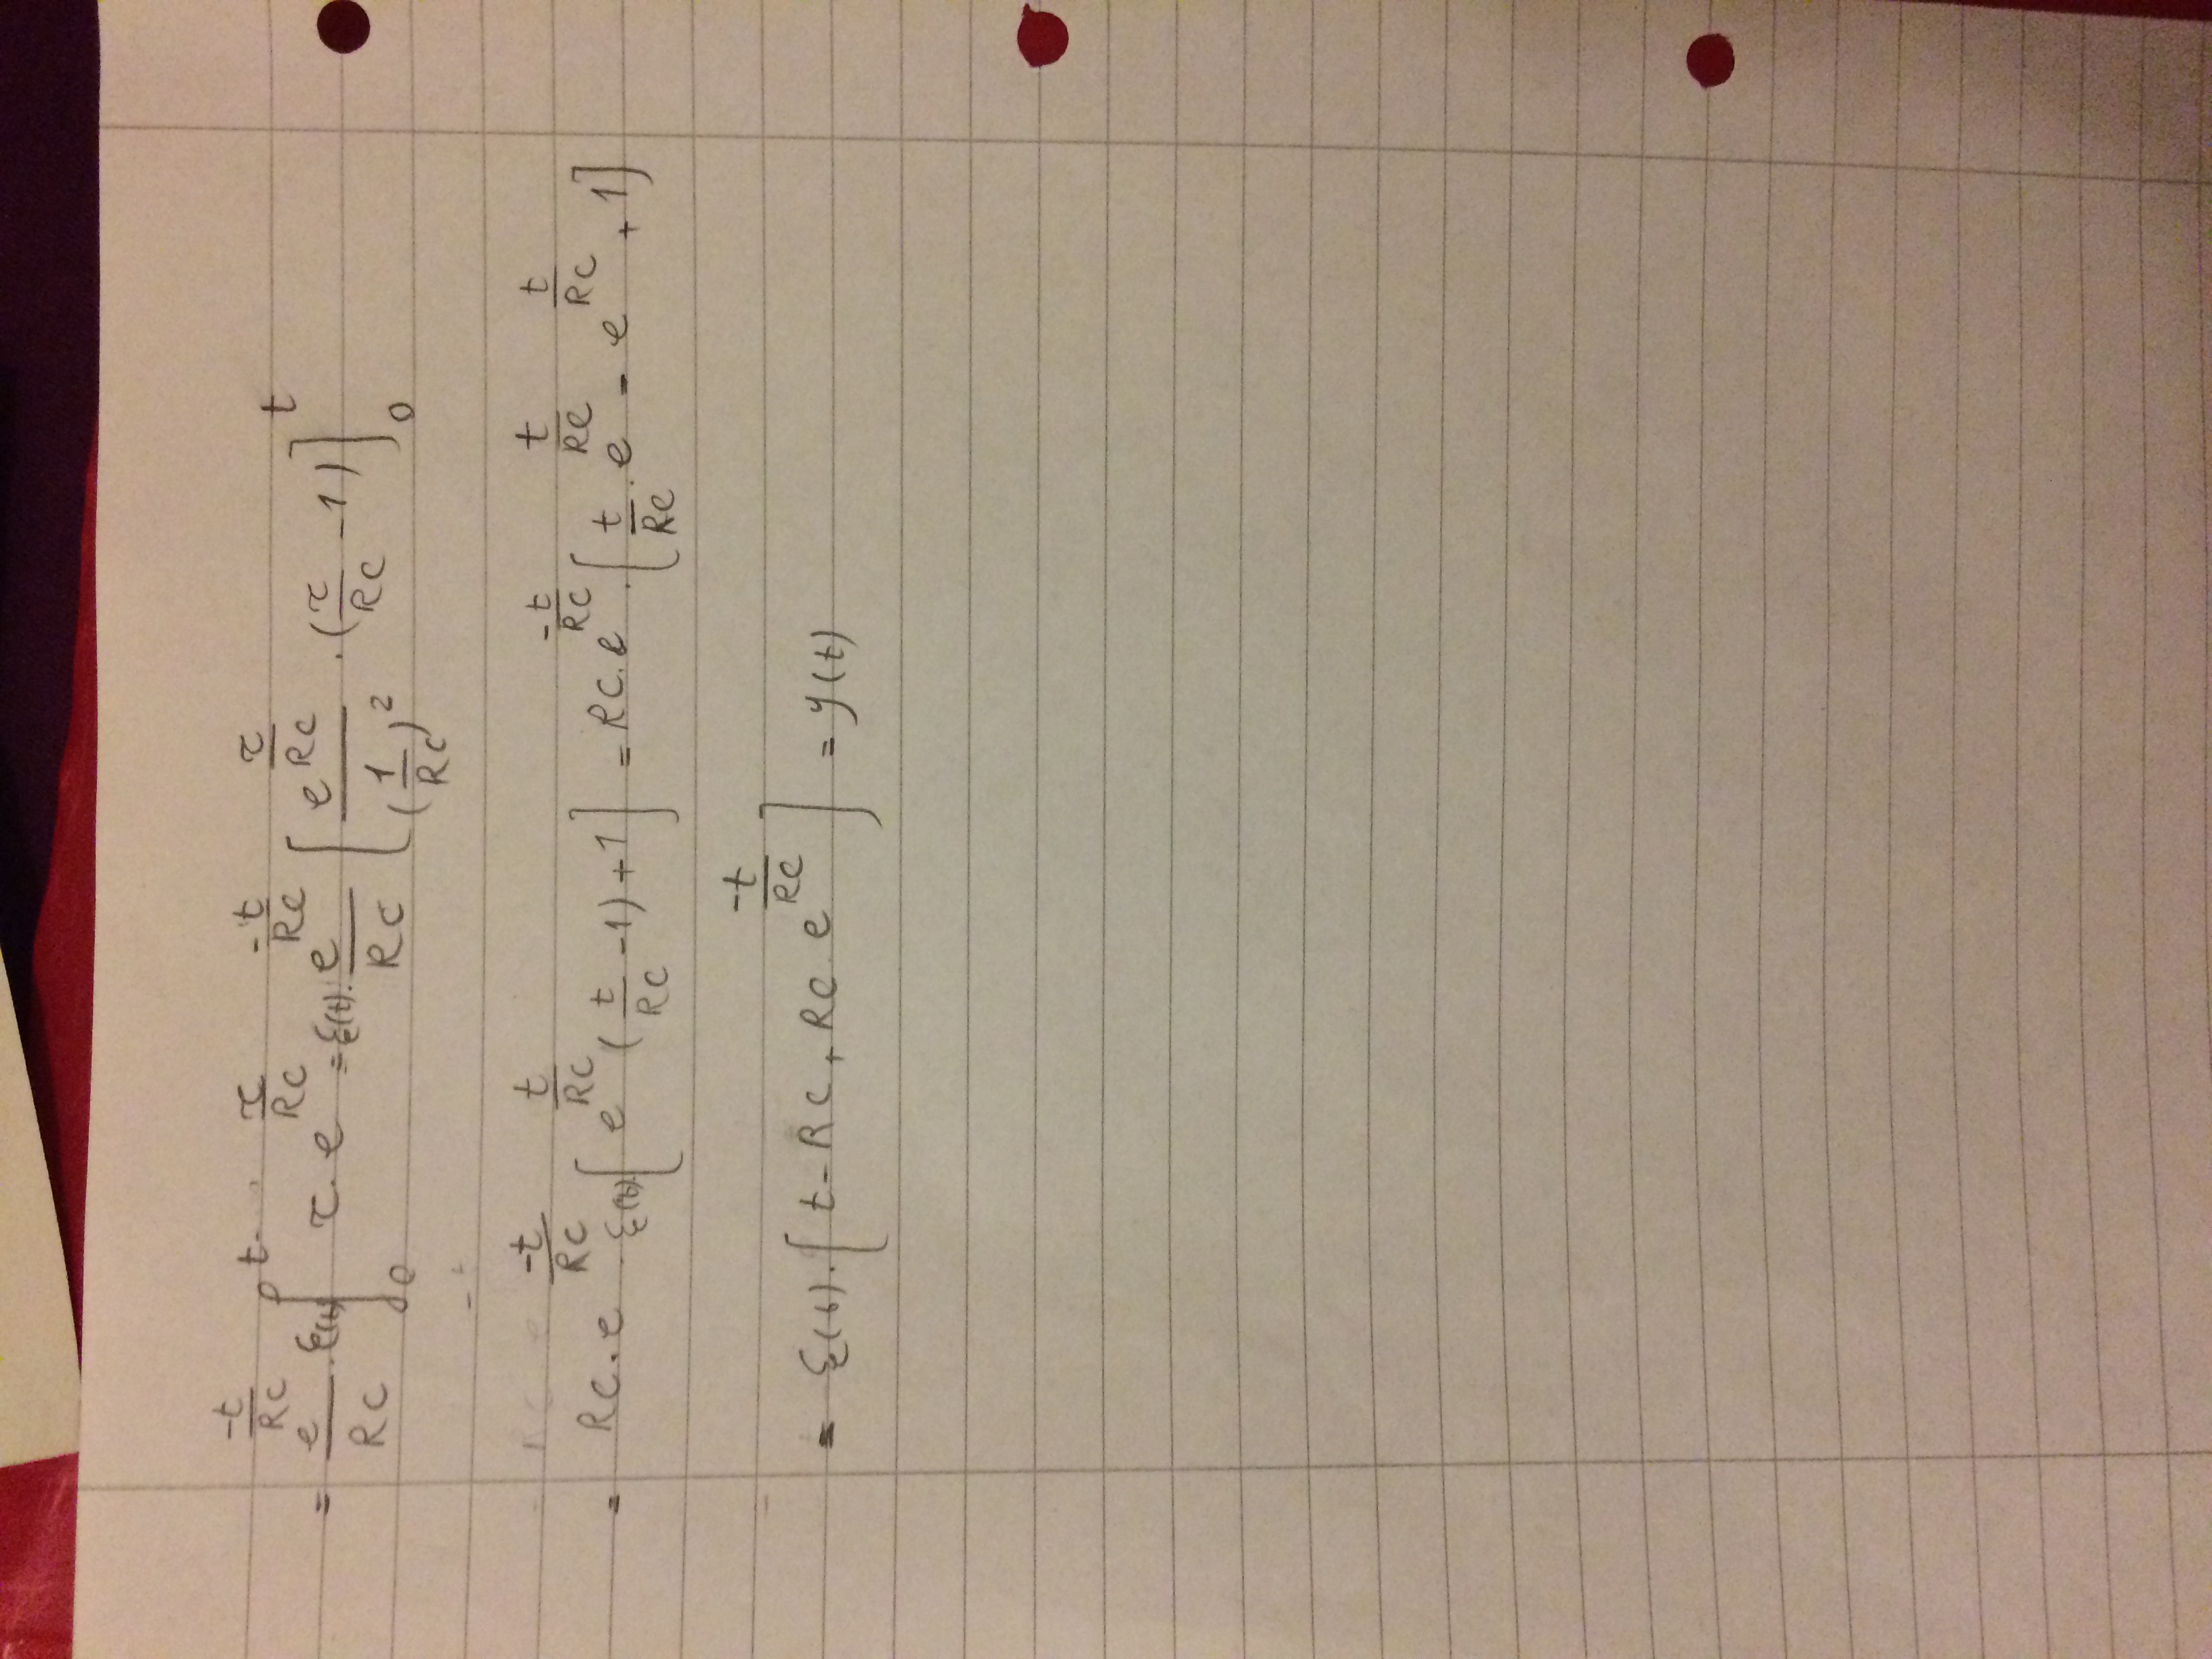 = e^(-t/RC)/RC · ε(t) ∫_0^t τ · e^(τ/RC) = ε(t) · e^(-t/RC)/RC [ e^(τ/RC)/(1/RC)^2 · (τ/RC - 1) ]_0^t
= RC · e^(-t/RC) · ε(t) · [ e^(t/RC) (t/RC - 1) + 1 ] = RC · e^(-t/RC) · [ t/RC · e^(t/RC) - e^(t/RC) + 1 ]
= ε(t) · [ t - RC + RC e^(-t/RC) ] = y(t)